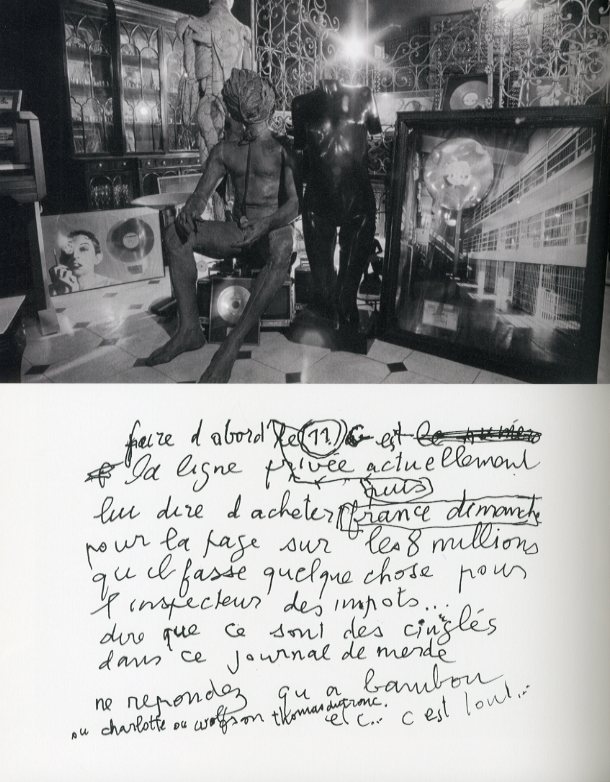 faire d'abord le 11 c est le numéro
la ligne privée actuellement
puis
lui dire d'acheter france dimanche
pour la page sur les 8 millions
qu il fasse quelque chose pour
l'inspecteur des impots...
dire que ce sont des cinglés
dans ce journal de merde
ne repondez qu a bambou
ou charlotte ou wolfson thomas dutronc.
etc... c est tout...